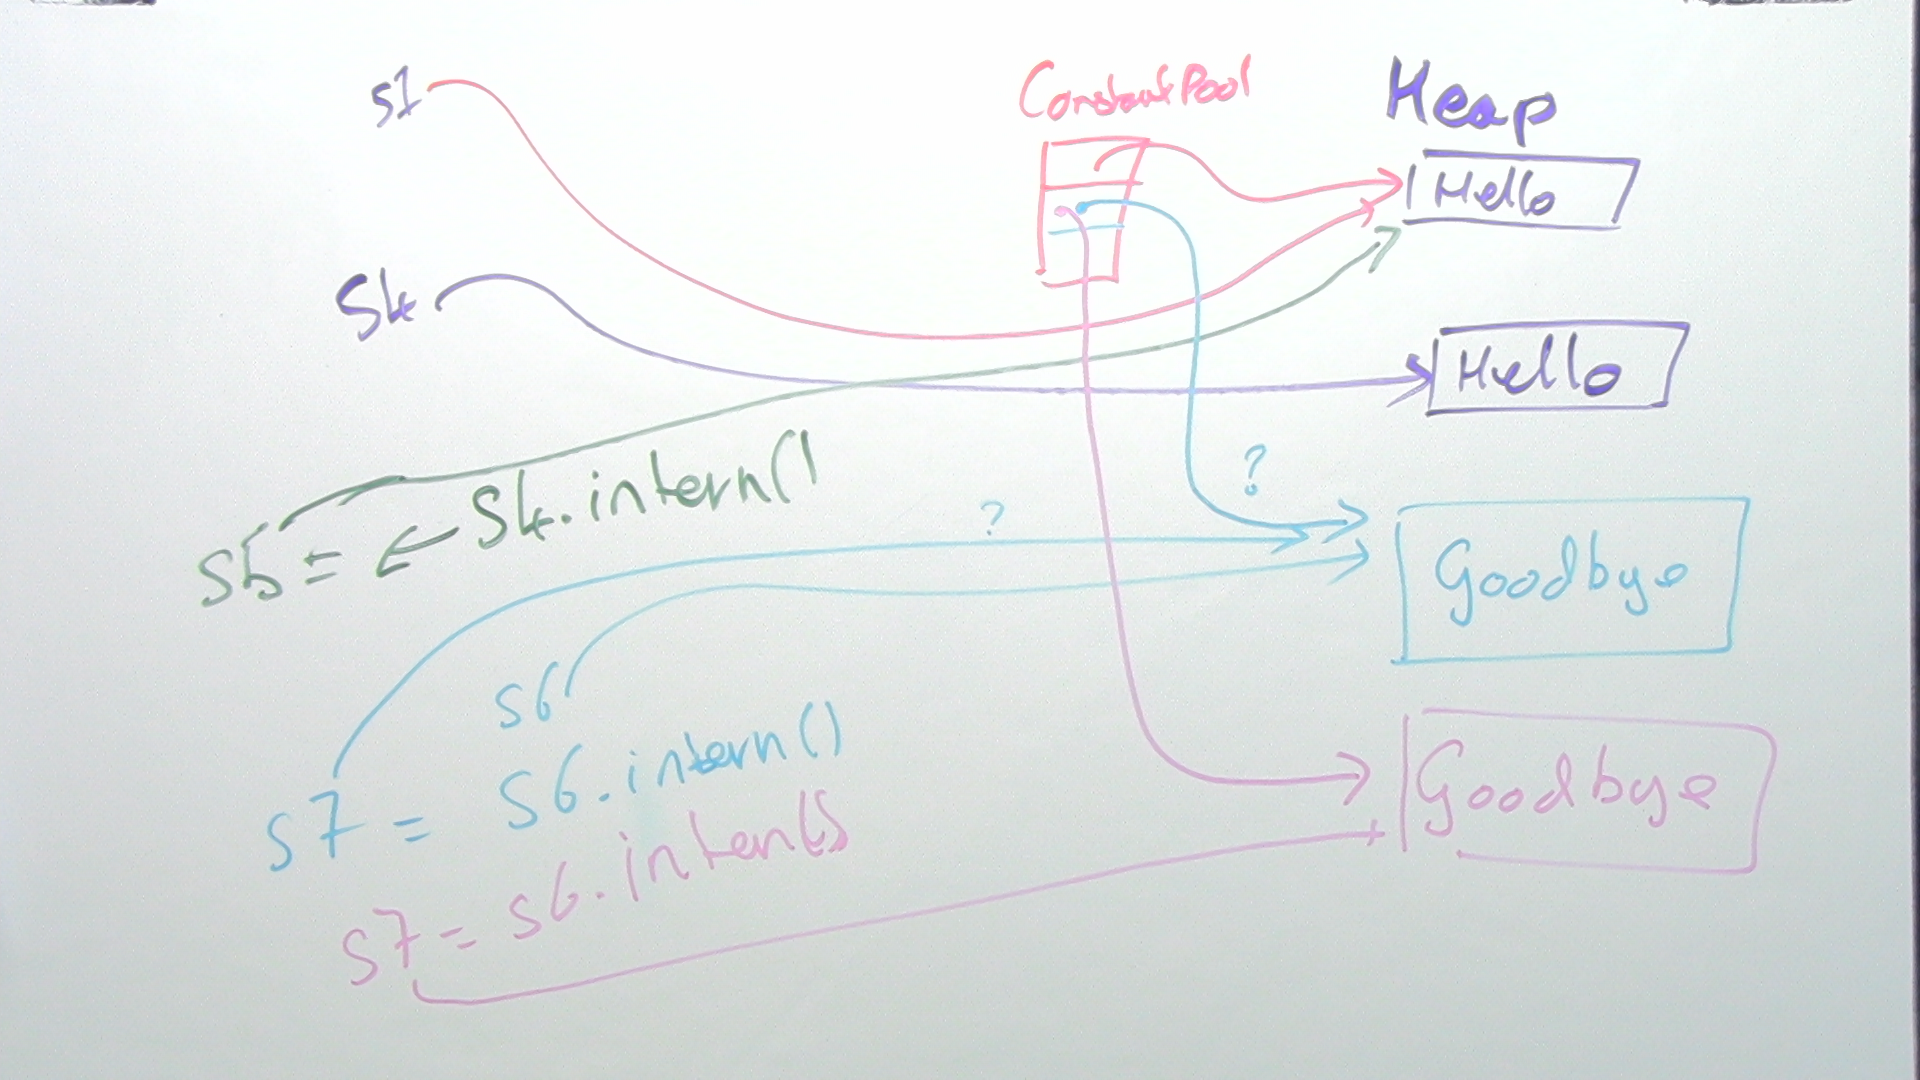 s1
Constant Pool
Heap
Hello
S4
Hello
s5 = ← S4.intern()
?
?
Goodbye
s6
s7 = s6.intern()
Goodbye
s7 = s6.intern()